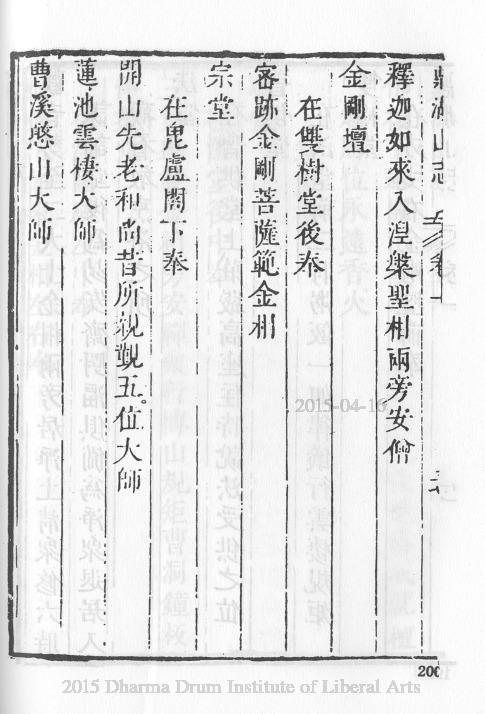 鼎湖山志 卷一
釋迦如來入涅槃聖相兩旁安僧
金剛壇
在雙樹堂後奉
密跡金剛菩薩範金相
宗堂
在毘盧閣下奉
開山先老和尚昔所親覲五位大師
蓮池雲棲大師
曹溪憨山大師
200
2015-04-16
2015 Dharma Drum Institute of Liberal Arts